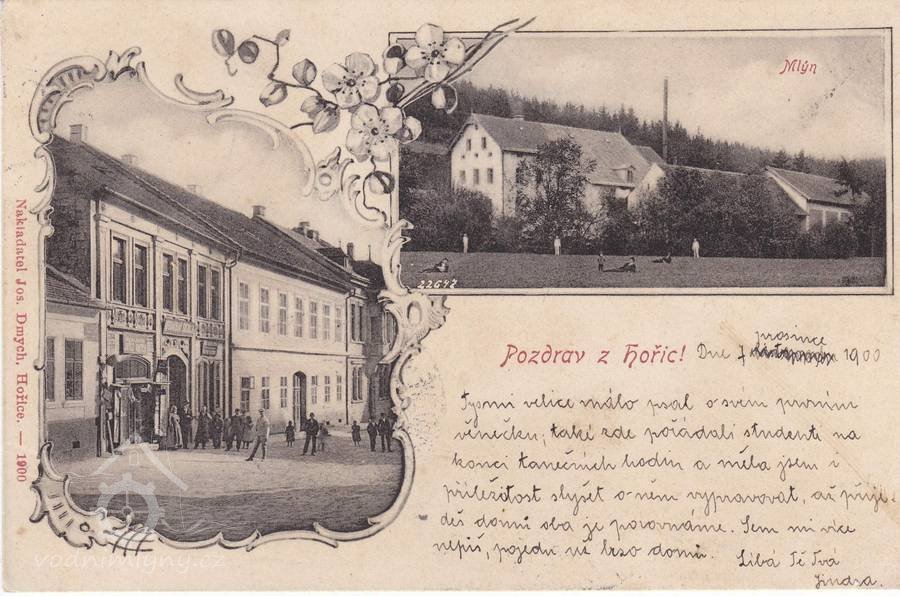 Mlýn
22647
Nakladatel Jos. Dmych, Hořice. — 1900
Pozdrav z Hořic!
prosince
Dne 1900
Tys mi velice málo psal o svém prvním
věnečku, také zde pořádali studenti na
konci tanečních hodin a měla jsem i
příležitost slyšet o něm vypravovat, až přije-
deš domů oba je porovnáme. Sem mi více
nepiš, pojedu už brzo domů.
Líbá Tě Tvá
Jindra.
vodnimlyny.cz